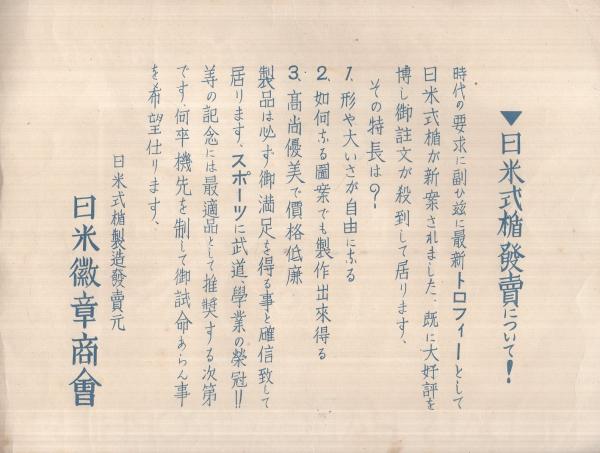 ▼日米式楯發賣について！
時代の要求に副ひ玆に最新トロフィーとして
日米式楯が新案されました、既に大好評を
博し御註文が殺到して居ります、
その特長は？
1. 形や大いさが自由になる
2. 如何なる圖案でも製作出來得る
3. 高尚優美で價格低廉
製品は必ず御満足を得る事と確信致して
居ります、スポーツに武道、學業の榮冠!!
等の記念には最適品として推奨する次第
です、何卒機先を制して御試命あらん事
を希望仕ります、
日米式楯製造發賣元
日米徽章商會